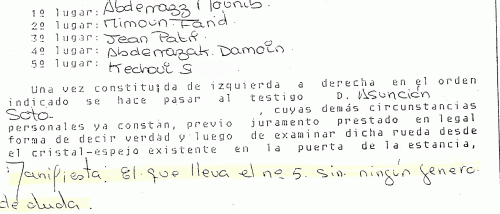 1º lugar: Abderrazz Mounib.
2º lugar: Mimoun Farid.
3º lugar: Jean Patif
4º lugar: Abderrazak. Damoín
5º lugar: Kechoui S
Una vez constituida de izquierda a derecha en el orden
indicado se hace pasar al testigo D. Asunción
Soto- , cuyas demás circunstancias
personales ya constan, previo juramento prestado en legal
forma de decir verdad y luego de examinar dicha rueda desde
el cristal-espejo existente en la puerta de la estancia,
Manifiesta: El que lleva el nº 5. sin ningún genero
de duda.